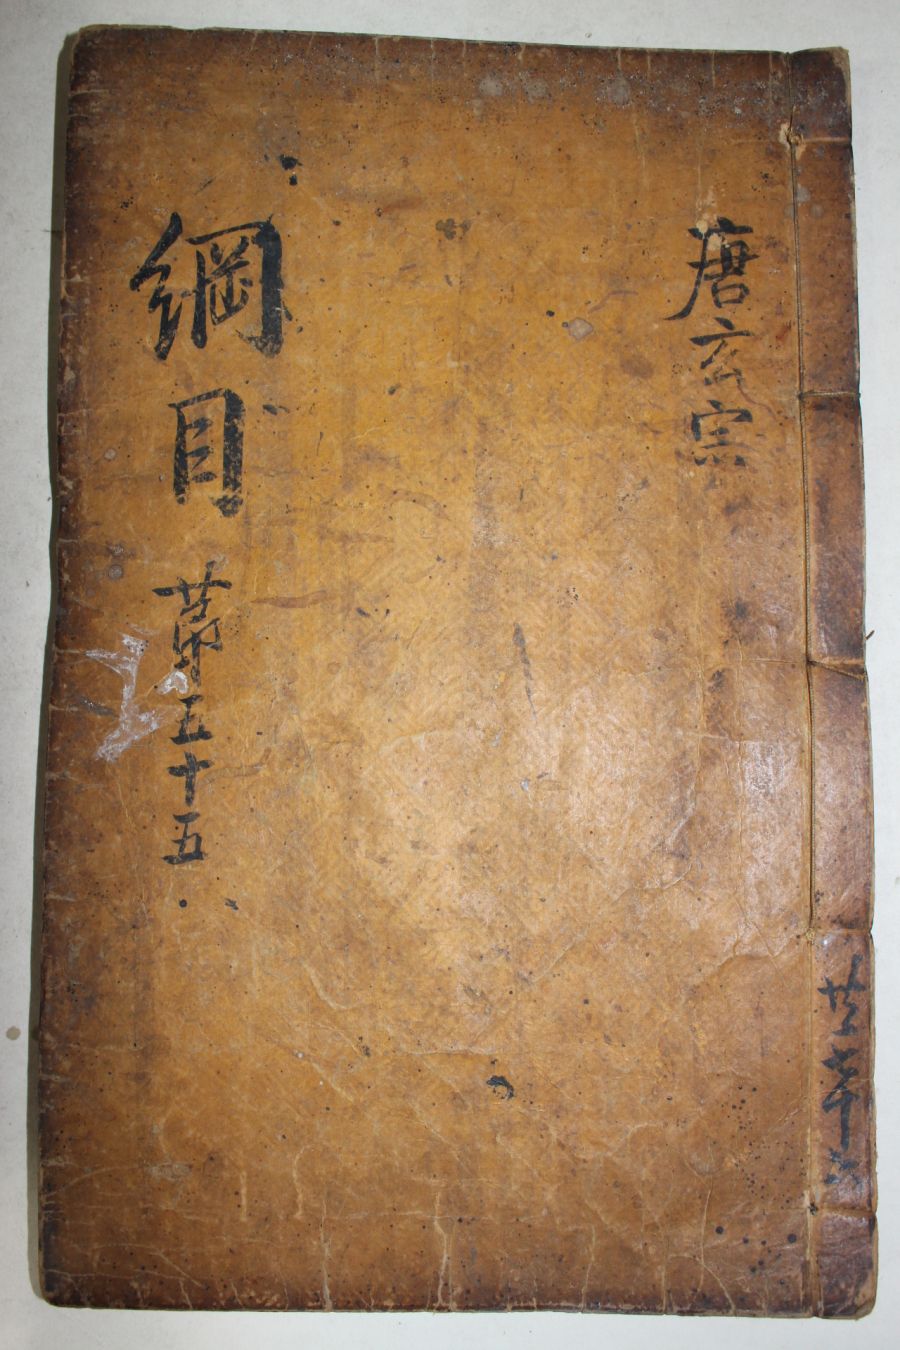 唐玄宗
綱目
第五十五